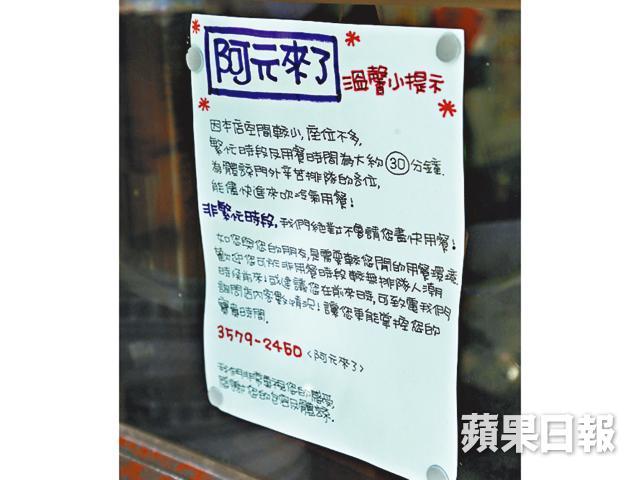 阿元來了
溫馨小提示
因本店空間較小,座位不多,
繁忙時段及用餐時間為大約30分鐘.
為體諒門外辛苦排隊的各位,
能儘快進來吹冷氣用餐!
非繁忙時段,我們絕對不會請您盡快用餐!
如您與您的朋友,是需要較您閒的用餐環境,
歡迎您可於非用餐時段較無排隊人潮
時候前來!或建議您在前來時,可致電我們
詢問店內客數情況!讓您更能掌控您的
寶貴時間.
3579-2460 <阿元來了>
我們非常重視您的感受.
感謝您的包容及體諒.
蘋果日報